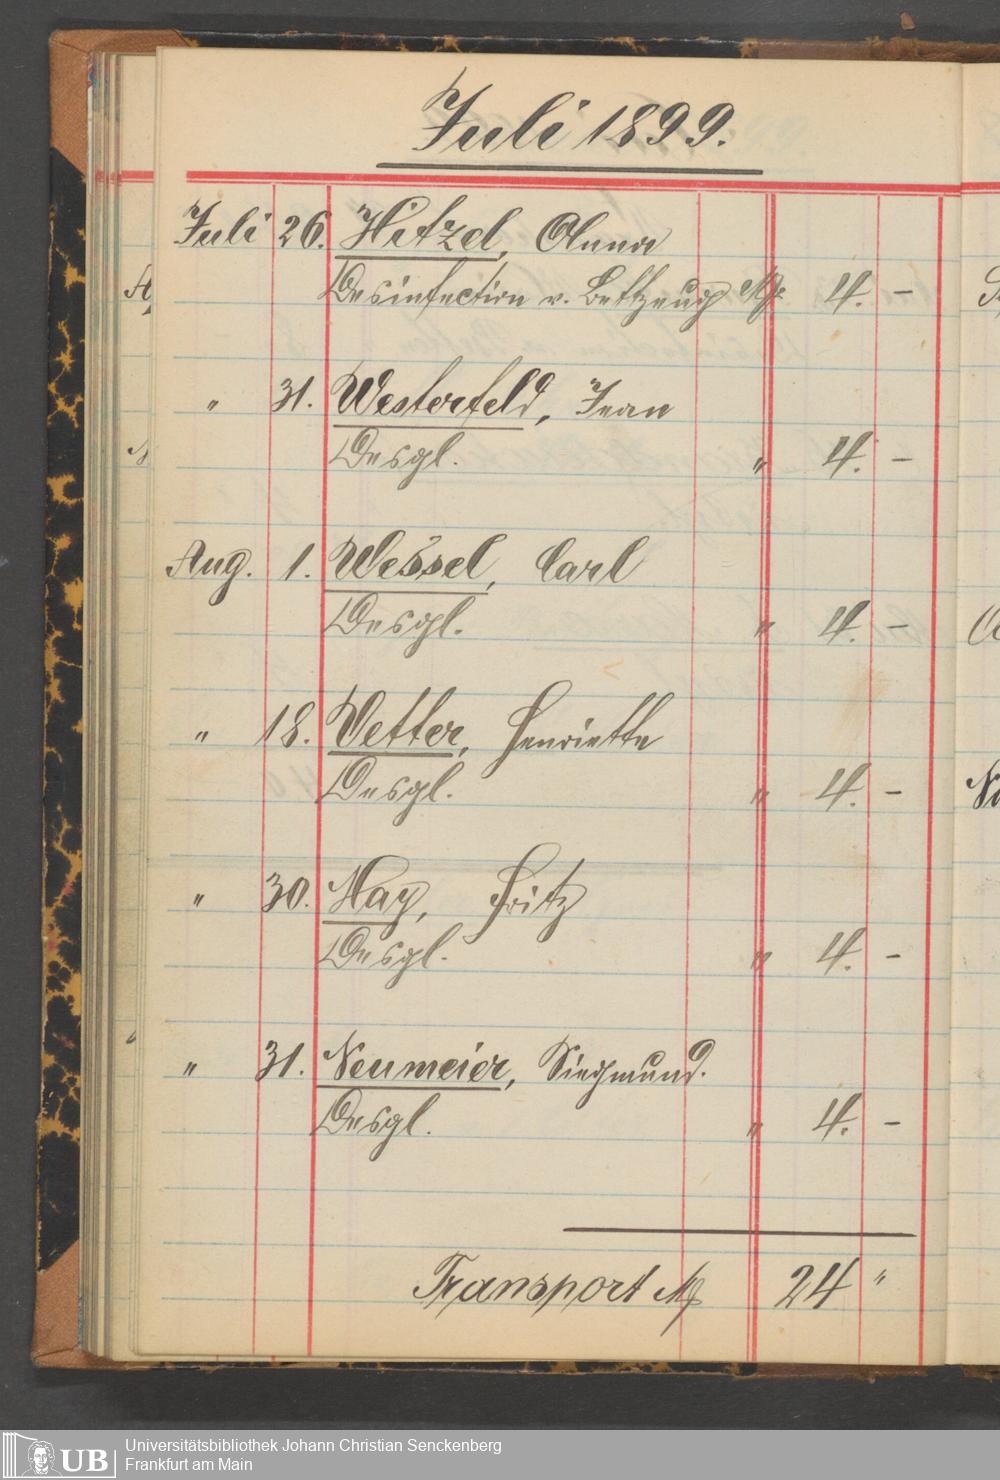 Juli 1899.
Juli 26. Hitzel, Anna
Desinfection v. Bettzeug Mk. 4. –
" 31. Westerfeld, Jean
Desgl. " 4. –
Aug. 1. Wessel, Carl
Desgl. " 4. –
" 18. Vetter, Henriette
Desgl. " 4. –
" 30. May, Fritz
Desgl. " 4. –
" 31. Neumeier, Siegmund.
Desgl. " 4. –
Transport Mk 24 "
UB
Universitätsbibliothek Johann Christian Senckenberg
Frankfurt am Main